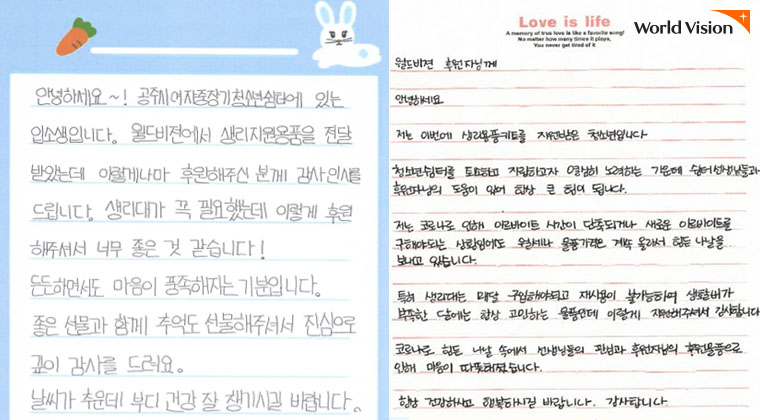 안녕하세요~! 공주시여자중장기청소년쉼터에 있는
입소생입니다. 월드비전에서 생리지원용품을 전달
받았는데 이렇게나마 후원해주신 분께 감사인사를
드립니다. 생리대가 꼭 필요했는데 이렇게 후원
해주셔서 너무 좋은 것 같습니다!
든든하면서도 마음이 풍족해지는 기분입니다.
좋은 선물과 함께 추억도 선물해주셔서 진심으로
깊이 감사를 드려요.
날씨가 추운데 부디 건강 잘 챙기시길 바랍니다.
Love is life
A memory of true love is like a favorite song!
No matter how many times it plays,
You never get tired of it
World Vision
월드비젼 후원자님께
안녕하세요
저는 이번에 생리용품키트를 지원받은 청소년입니다
청소년쉼터를 퇴소하고 자립하고자 열심히 노력하는 가운데 쉼터선생님들과
후원자님의 도움이 있어 항상 큰 힘이 됩니다.
저는 코로나로 인해 아르바이트 시간이 단축되거나 새로운 아르바이트를
구해야되는 상황임에도 월세나 물품가격은 계속 올라서 힘든 나날을
보내고 있습니다.
특히 생리대는 매달 구입해야되고 재사용이 불가능하여 생활비가
부족한 달에는 항상 고민하는 물품인데 이렇게 지원해주셔서 감사합니다
코로나로 힘든 나날 속에서 선생님들의 관심과 후원자님의 후원물품으로
인해 마음이 따뜻해졌습니다.
항상 건강하시고 행복하시길 바랍니다. 감사합니다.